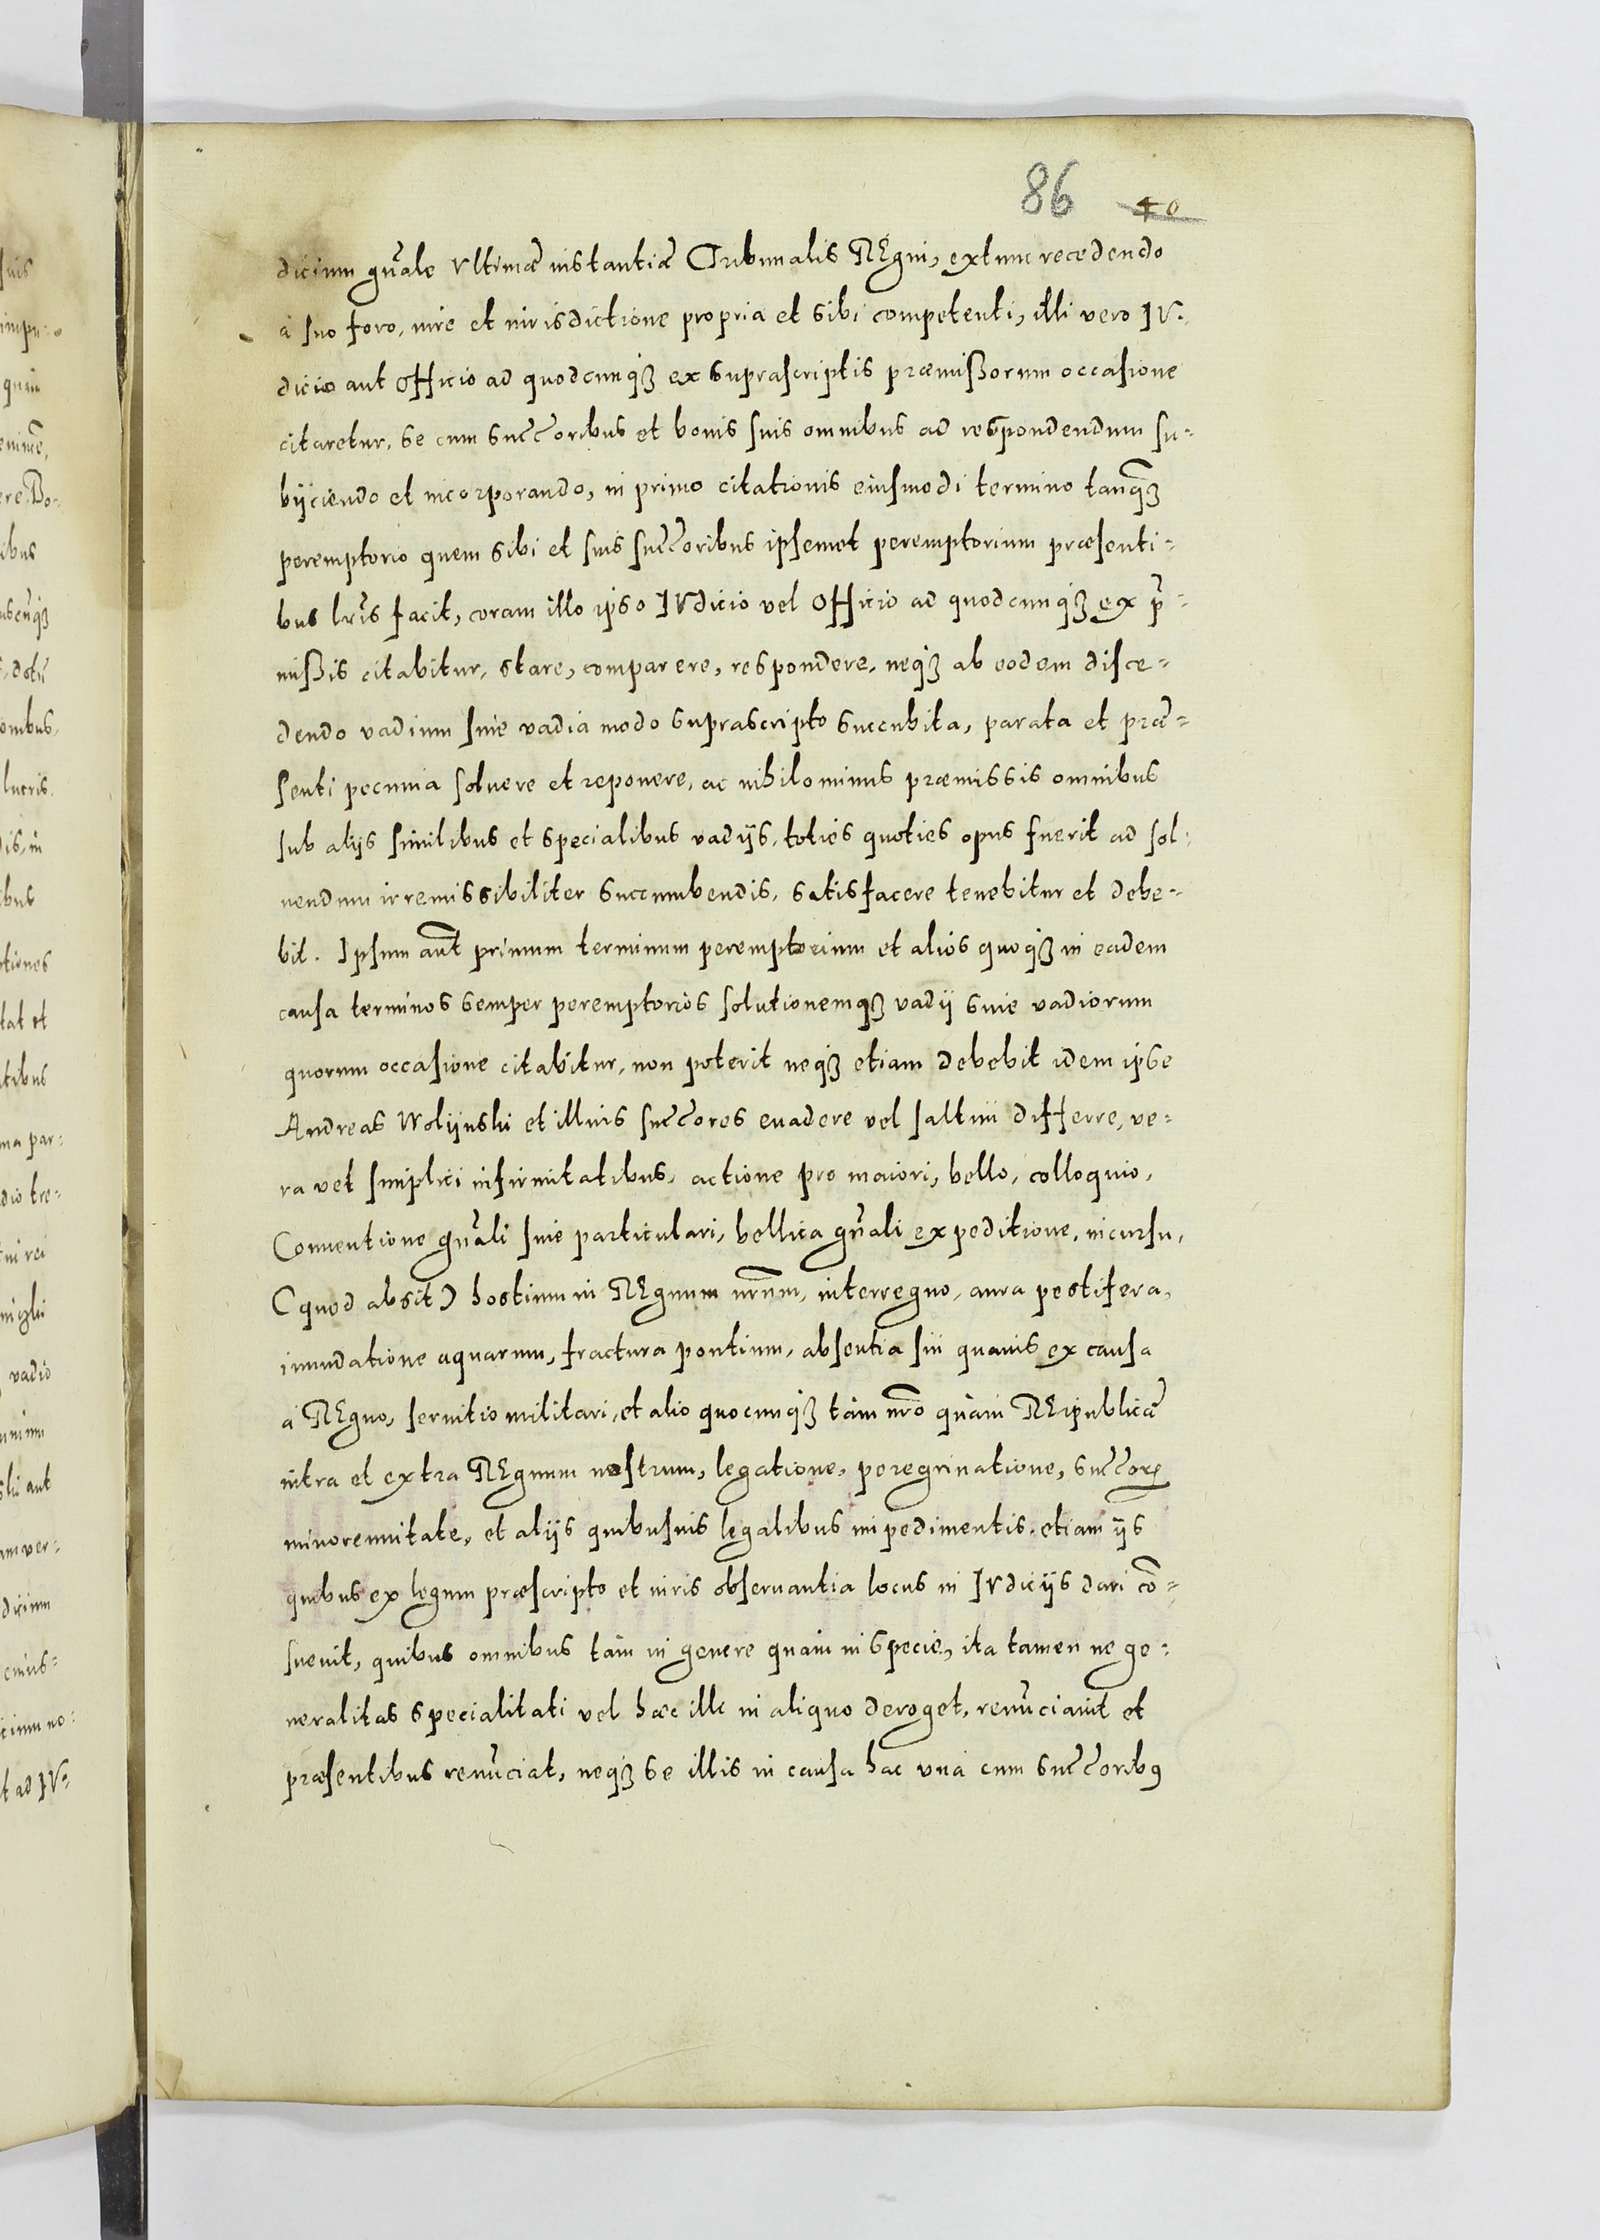 86 40
dicium gnãle Vltimæ instantiæ Tribunalis REgni, extunc recedendo
à suo foro, iure et iurisdictione propria et sibi competenti, illi vero IV-
dicio aut officio ad quodcunqȝ ex suprascriptis præmißorum occasione
citaretur, se cum succoribus et bonis suis omnibus ad respondendum su-
biiciendo et incorporando, in primo citationis eiusmodi termino tanqȝ
peremptorio quem sibi et suis succoribus ipsemet peremptorium præsenti-
bus lris facit, coram illo ipso IVdicio vel officio ad quodcunqȝ ex p̃-
mißis citabitur, stare, comparere, respondere, neqȝ ab eodem disce-
dendo vadium siue vadia modo suprascripto succubita, parata et præ-
senti pecunia soluere et reponere, ac nihilominus præmissis omnibus
sub aliis similibus et specialibus vadiis, toties quoties opus fuerit ad sol-
uendum irremissibiliter succumbendis, satisfacere tenebitur et debe-
bit. Ipsum aut̃ primum terminum peremptorium et alios quoqȝ in eadem
causa terminos semper peremptorios solutionemqȝ vadii siue vadiorum
quorum occasione citabitur, non poterit neqȝ etiam debebit idem ipse
Andreas Woliinski et illius succores euadere vel saltim differre, ve-
ra vel simplici infirmitatibus, actione pro maiori, bello, colloquio,
Conuentione gnãli siue particulari, bellica gnãli expeditione, incursu,
(quod absit) hostium in REgnum nrũm, interregno, aura pestifera,
inundatione aquarum, fractura pontium, absentia sui quauis ex causa
à REgno, seruitio militari, et alio quocunqȝ tàm nrõ quàm REipublicæ
intra et extra REgnum nostrum, legatione, peregrinatione, succorꝝ
minorennitate, et aliis quibusuis legalibus impedimentis, etiam iis
quibus ex legum præscripto et iuris obseruantia locus in IVdiciis dari cõ-
sueuit, quibus omnibus tàm in genere quàm in specie, ita tamen ne ge-
neralitas specialitati vel hæc illi in aliquo deroget, renũciauit et
præsentibus renũciat, neqȝ se illis in causa hac vna cum succoribꝰ